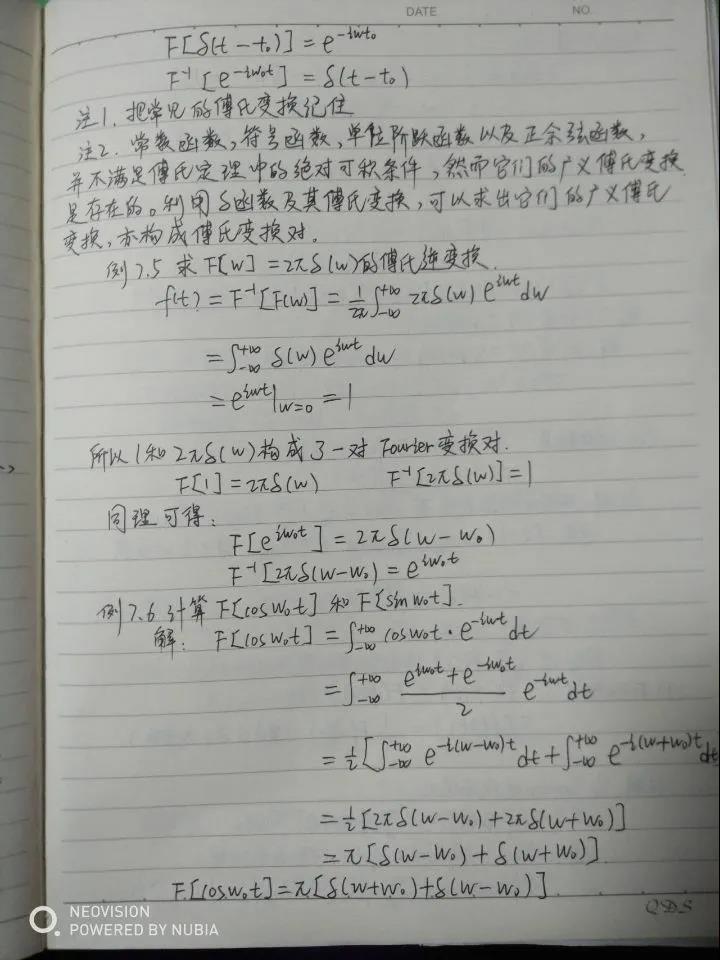 DATE NO.
F[δ(t-t₀)] = e^{-iwt₀}
F⁻¹[e^{-iw₀t}] = δ(t-t₀)
注1. 把常见的傅氏变换记住
注2. 常数函数,符号函数,单位阶跃函数以及正余弦函数,
并不满足傅氏定理中的绝对可积条件,然而它们的广义傅氏变换
是存在的。利用δ函数及其傅氏变换,可以求出它们的广义傅氏
变换,亦构成傅氏变换对.
例7.5 求F[w]=2πδ(w)的傅氏逆变换.
f(t) = F⁻¹[F(w)] = 1/2π ∫_{-∞}^{+∞} 2πδ(w) e^{iwt} dw
= ∫_{-∞}^{+∞} δ(w) e^{iwt} dw
= e^{iwt}|_{w=0} = 1
所以1和2πδ(w)构成了一对Fourier变换对.
F[1] = 2πδ(w) F⁻¹[2πδ(w)] = 1
同理可得:
F[e^{iw₀t}] = 2πδ(w-w₀)
F⁻¹[2πδ(w-w₀) = e^{iw₀t}
例7.6 计算F[cosw₀t]和F[sinw₀t].
解: F[cosw₀t] = ∫_{-∞}^{+∞} cosw₀t · e^{-iwt} dt
= ∫_{-∞}^{+∞} (e^{iw₀t} + e^{-iw₀t})/2 e^{-iwt} dt
= 1/2 [∫_{-∞}^{+∞} e^{-i(w-w₀)t} dt + ∫_{-∞}^{+∞} e^{-i(w+w₀)t} dt
= 1/2 [2πδ(w-w₀) + 2πδ(w+w₀)]
= π[δ(w-w₀) + δ(w+w₀)]
F[cosw₀t] = π[δ(w+w₀) + δ(w-w₀)].
QDS
NEOVISION
POWERED BY NUBIA